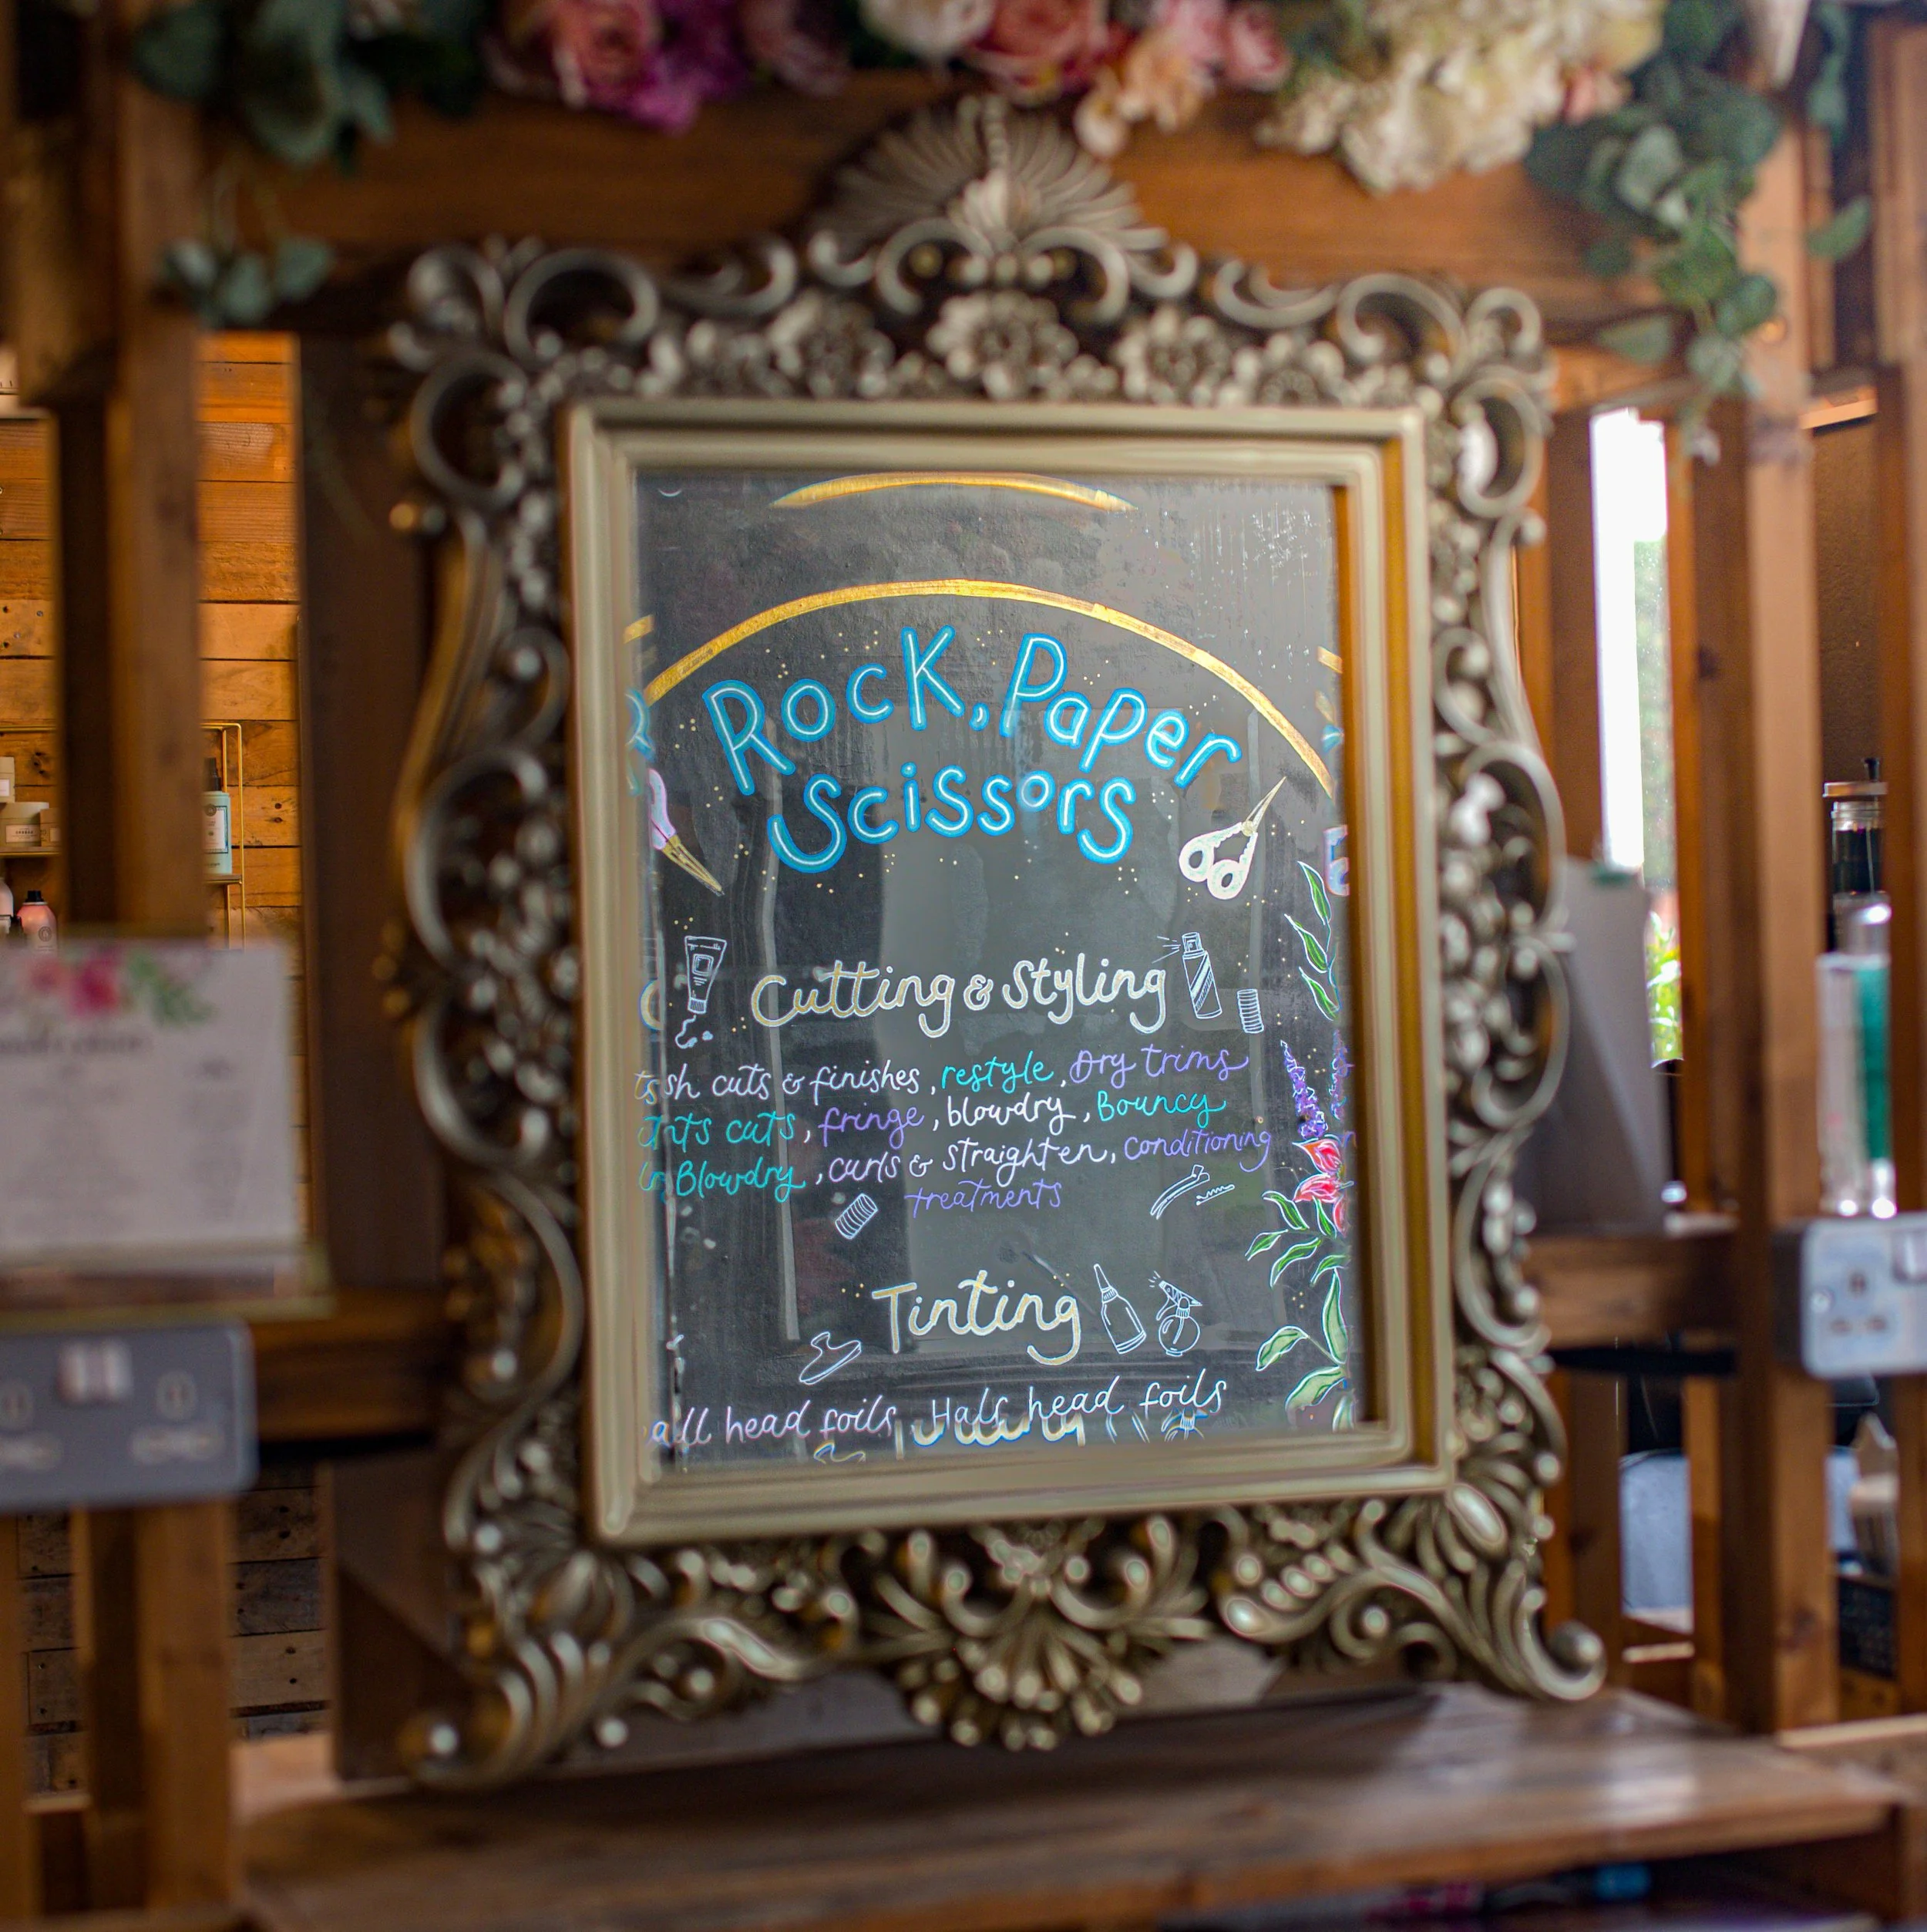 Rock, Paper
Scissors
Cutting & Styling
cuts & finishes, restyle, Dry trims
cuts, fringe, blowdry, Bouncy
Blowdry, curls & straighten, conditioning
treatments
Tinting
head foils, Half head foils